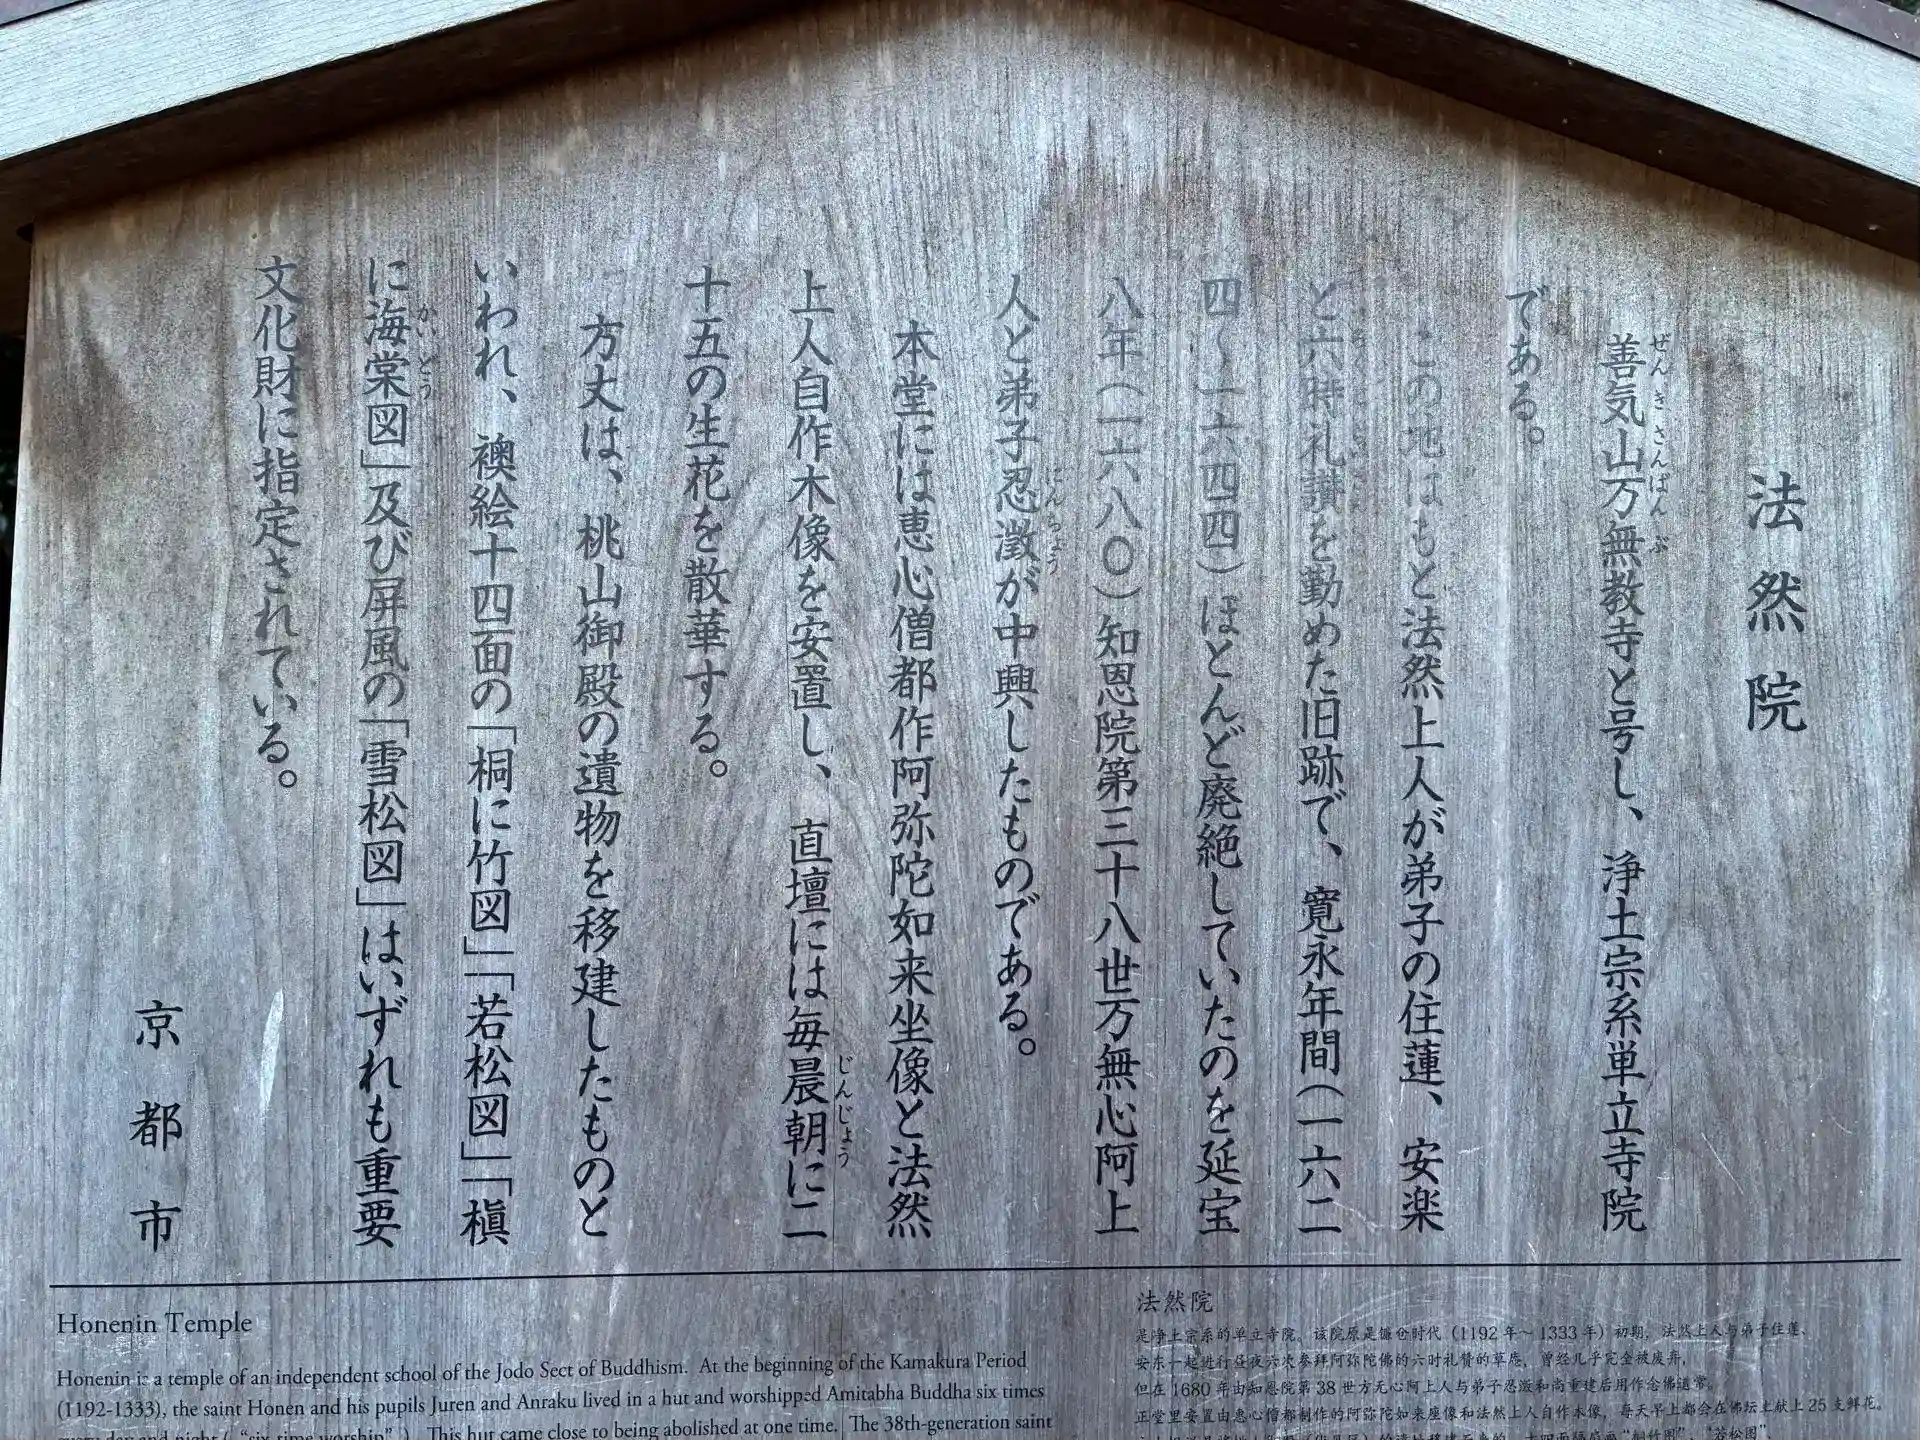 法然院
善気山万無教寺と号し、浄土宗系単立寺院
ぜんきさんばんぶ
である。
この地はもと法然上人が弟子の住蓮、安楽
と六時礼讃を勤めた旧跡で、寛永年間(一六二
四〜一六四四)ほとんど廃絶していたのを延宝
八年(一六八〇)知恩院第三十八世万無心阿上
人と弟子忍澂が中興したものである。
にんちょう
本堂には恵心僧都作阿弥陀如来坐像と法然
上人自作木像を安置し、直壇には毎晨朝に二
じんじょう
十五の生花を散華する。
方丈は、桃山御殿の遺物を移建したものと
いわれ、襖絵十四面の「桐に竹図」「若松図」「槇
に海棠図」及び屏風の「雪松図」はいずれも重要
かいどう
文化財に指定されている。
京都市
Honenin Temple
Honenin is a temple of an independent school of the Jodo Sect of Buddhism. At the beginning of the Kamakura Period
(1192-1333), the saint Honen and his pupils Juren and Anraku lived in a hut and worshipped Amitabha Buddha six times
every day and night ( "six-time worship" ). This hut came close to being abolished at one time. The 38th-generation saint
法然院
是净土宗系的单立寺院。该院原是镰仓时代(1192年～1333年)初期，法然上人与弟子住莲、
安东一起进行昼夜六次参拜阿弥陀佛的六时礼赞的草庵，曾经几乎完全被废弃，
但在1680年由知恩院第38世万无心阿上人与弟子忍澂和尚重建后用作念佛道常。
正堂里安置由惠心僧都制作的阿弥陀如来座像和法然上人自作本像，每天早上都会在佛坛上献上25支鲜花。